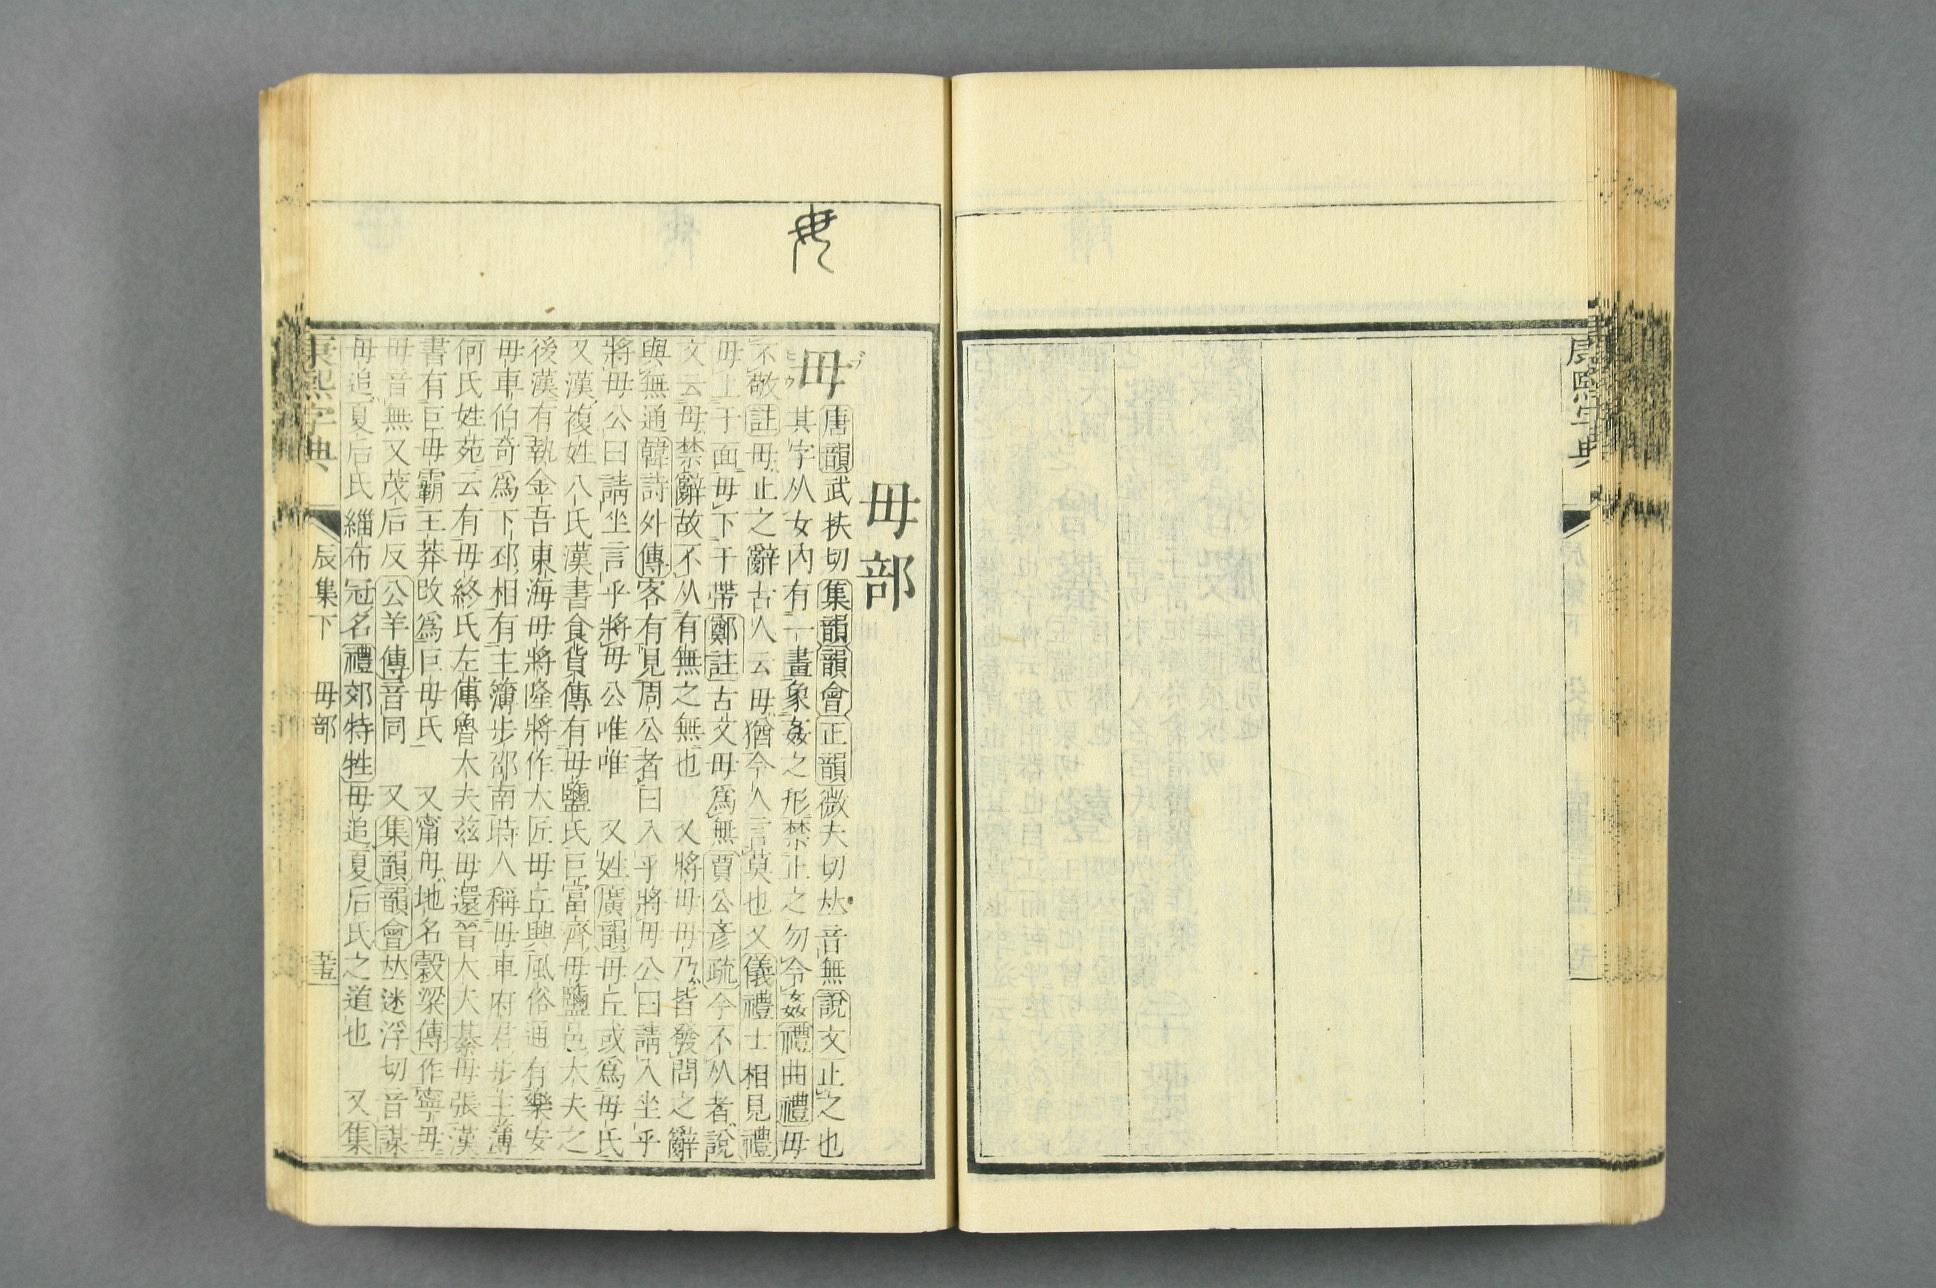 康熙字典
毋
毋部
毋
唐韻武扶切集韻韻會正韻微夫切𠀤音無說文止之也
其字从女內有一畫象姦之形禁止之勿令姦禮曲禮毋
不敬註毋止之辭古人云毋猶今人言莫也又儀禮士相見禮
毋上于面毋下于帶鄭註古文毋爲無賈公彥疏今不从者說
文云毋禁辭故不从有無之無也 又將毋毋乃皆發問之辭
與無通韓詩外傳客有見周公者曰入乎將毋公曰請入坐乎
將毋公曰請坐言乎將毋公唯唯 又姓廣韻毋丘或爲毋氏
又漢複姓八氏漢書食貨傳有毋鹽氏巨富齊毋鹽邑大夫之
後漢有執金吾東海毋將隆將作大匠毋丘興風俗通有樂安
毋車伯奇爲下邳相有主簿步邵南時人稱毋車府君步主簿
何氏姓苑云有毋終氏左傳魯大夫茲毋還晉大夫綦毋張漢
書有巨毋霸王莽改爲巨毋氏 又甯毋地名穀梁傳作寧毋
毋音無又茂后反公羊傳音同 又集韻韻會𠀤迷浮切音謀
毋追夏后氏緇布冠名禮郊特牲毋追夏后氏之道也 又集
康熙字典 辰集下 毋部